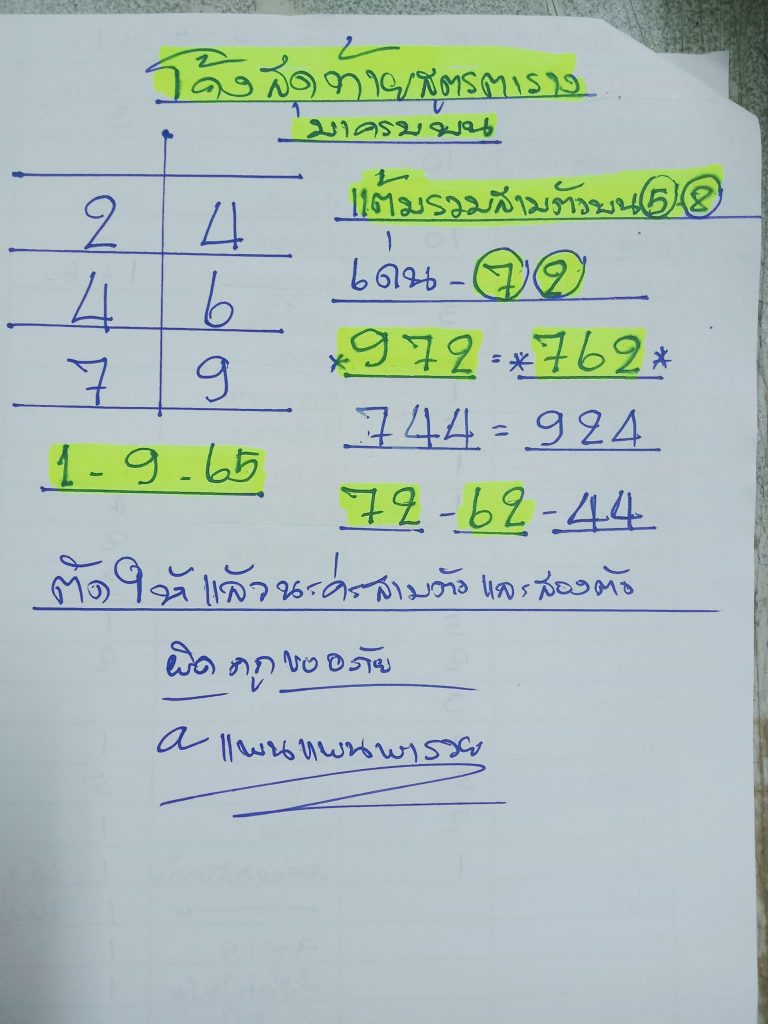 โค้งสุดท้ายสูตรตาราง
มาครบพบ
2 4
4 6
7 9
1 - 9 - 65
แต้มรวมสามตัวพบ 5 8
เด่น - 7 2
*972 = *762*
744 = 924
72 - 62 - 44
ตัดให้แล้วนะค่ะสามตัว และสองตัว
ผิด ถูก ขออภัย
a แพนแพนพารวย